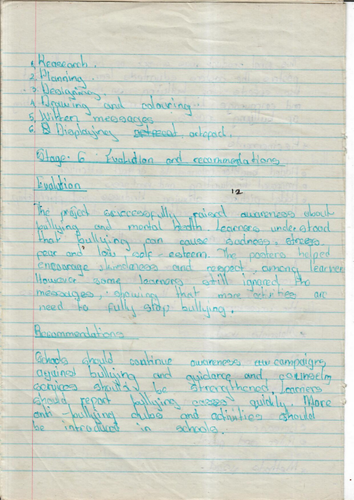 1. Research.
2. Planning.
3. Designing.
4. Drawing and colouring.
5. Written messages
6. Displaying artefact.
Stage: 6 Evaluation and recommendations
Evaluation
12
The project successfully raised awareness about
bullying and mental health learners understood
that bullying can cause sadness, stress,
fear and low self-esteem. The posters helped
encourage kindness and respect among learner
However some learners still ignored the
messages, showing that more activities are
need to fully stop bullying.
Recommendations
Schools should continue awareness campaigns
against bullying and guidance and
services should be strengthened. Learners
should report bullying cases quickly. More
anti-bullying clubs and activities should
be introduced in schools.